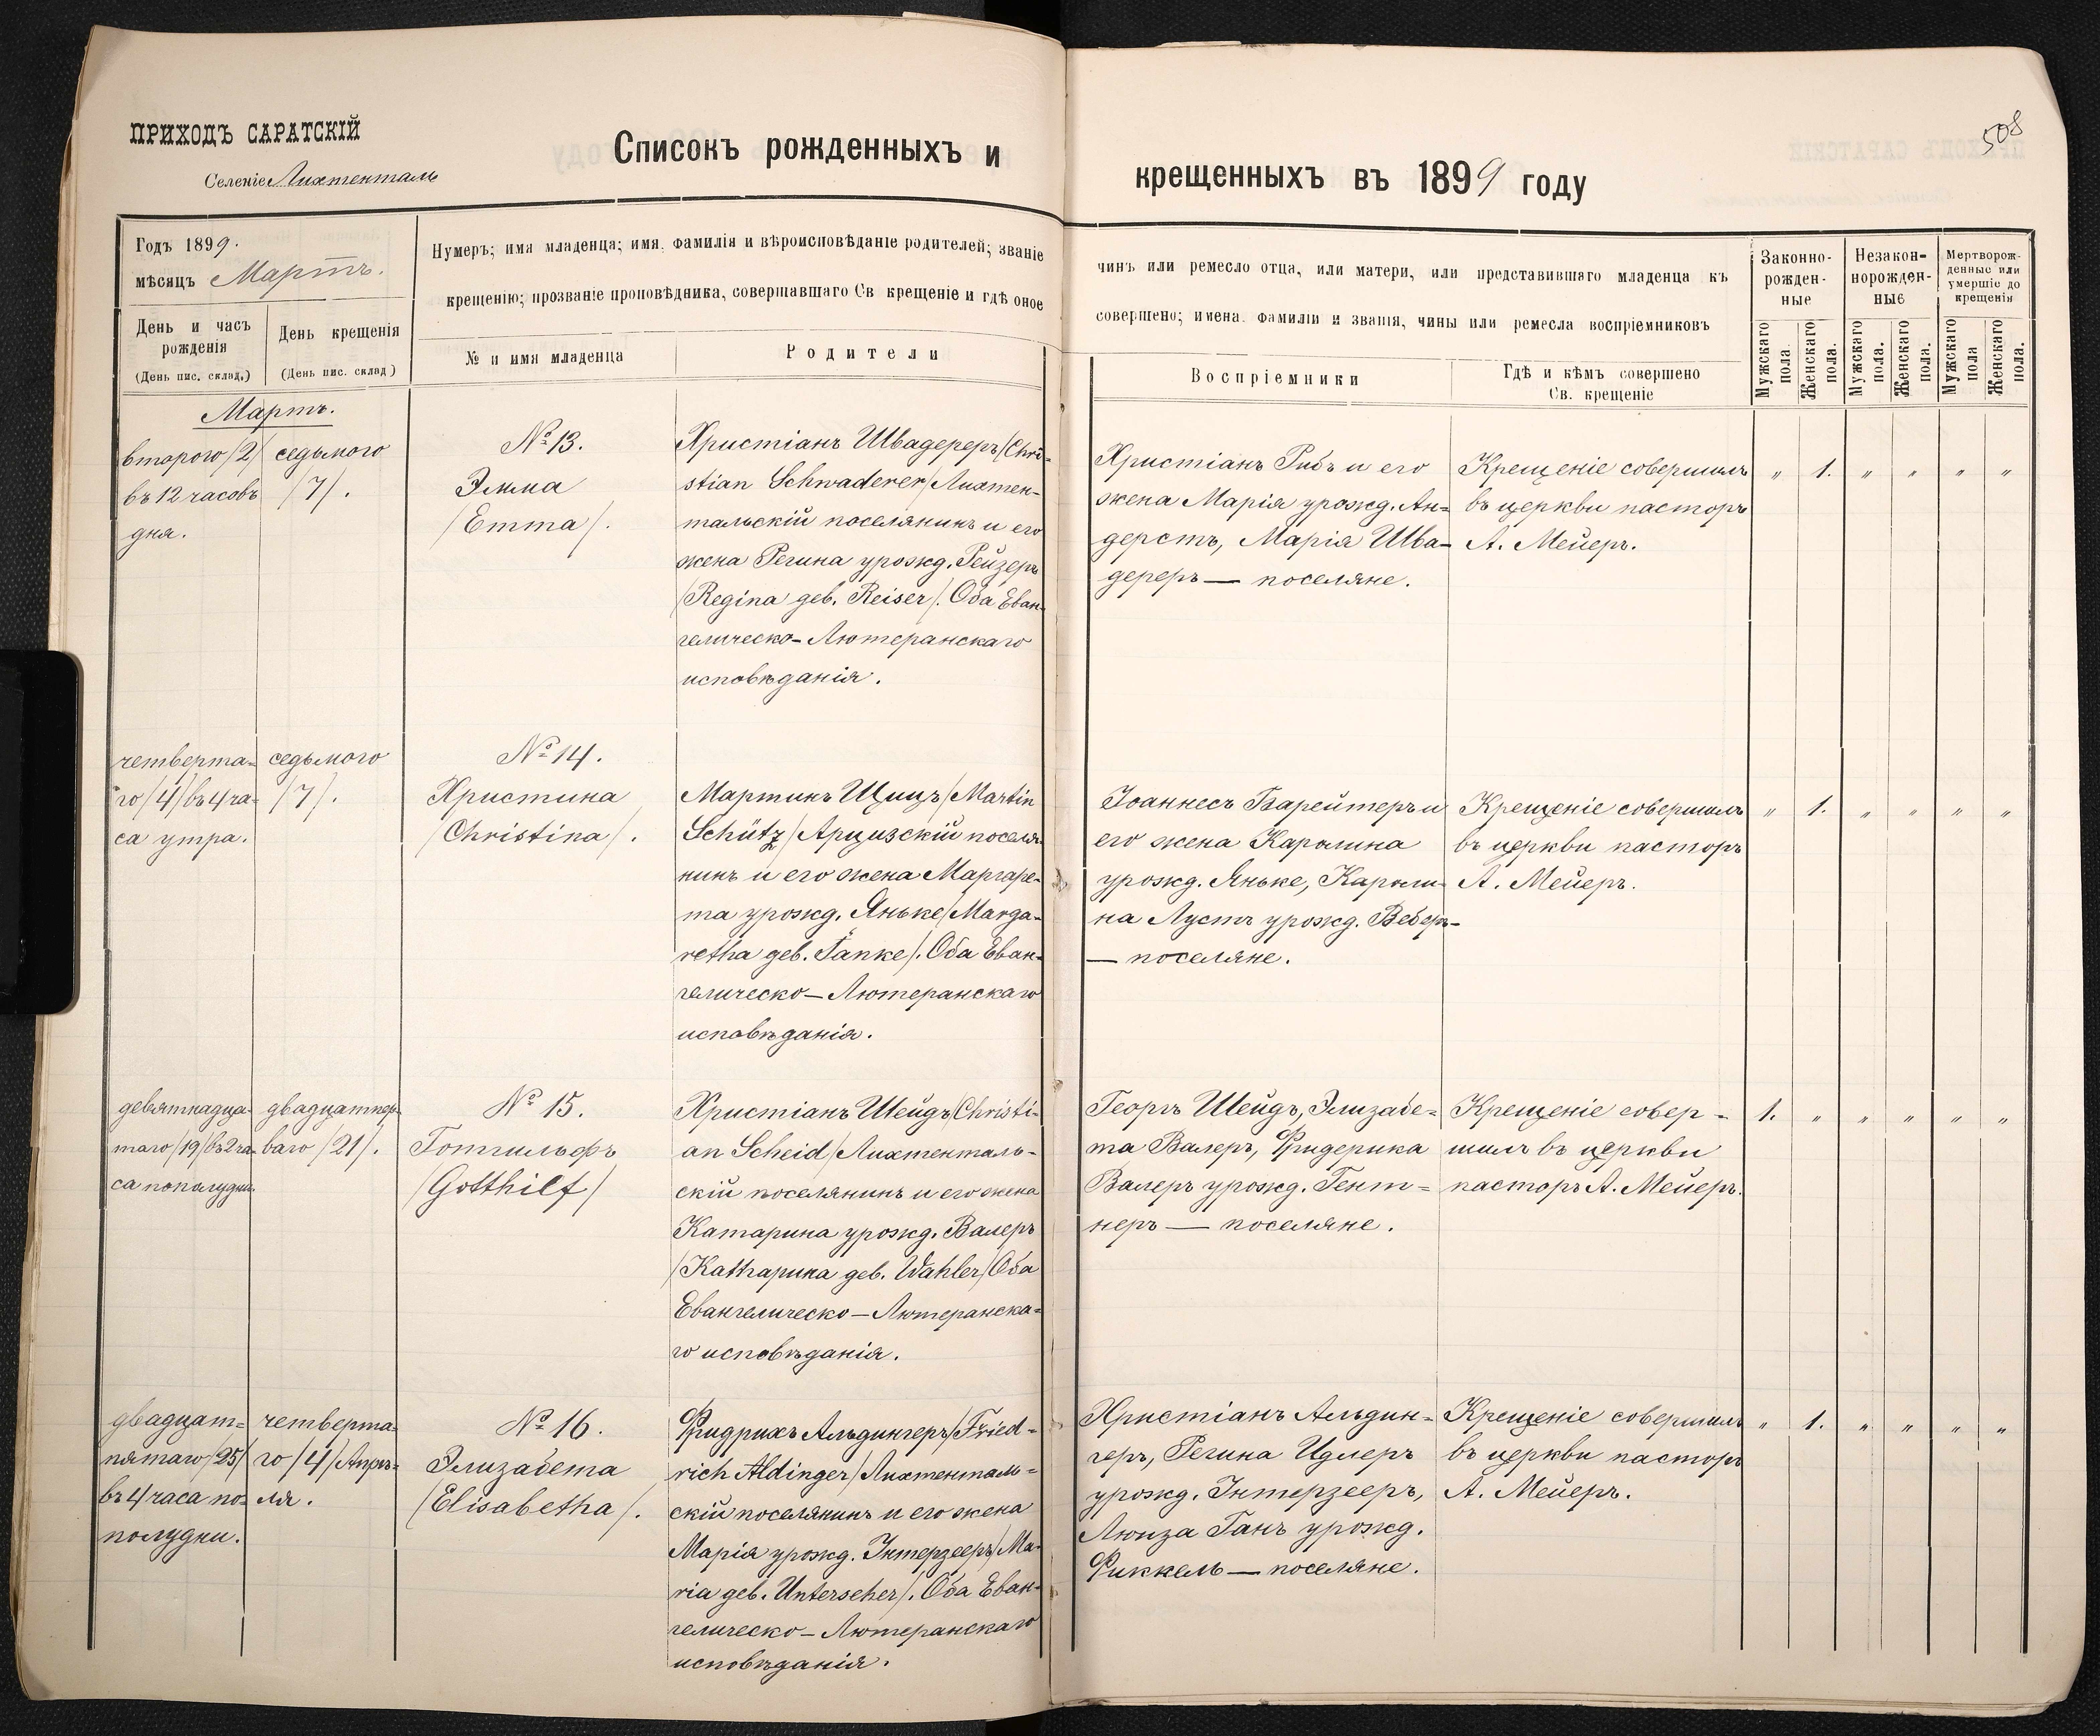 ПРИХОДЪ САРАТСКІЙ
Селеніе Лихтенталь
Списокъ рожденныхъ и
крещенныхъ въ 1899 году
508
Годъ 1899.
мѣсяцъ Мартъ.
День и часъ рожденія
(День пис. склад.)
День крещенія
(День пис. склад)
Нумеръ; имя младенца; имя. фамилія и вѣроисповѣданіе родителей; званіе
крещенію; прозваніе проповѣдника, совершавшаго Св крещеніе и гдѣ оное
№ и имя младенца
Родители
чинъ или ремесло отца, или матери, или представившаго младенца къ
совершено; имена. фамиліи и званія, чины или ремесла воспріемниковъ
Воспріемники
Гдѣ и кѣмъ совершено
Св. крещеніе
Законно-
рожден-
ные
Незакон-
норожден-
ные
Мертворож-
денные или
умершіе до
крещенія
Мужскаго пола.
Женскаго пола.
Мужскаго пола.
Женскаго пола.
Мужскаго пола
Женскаго пола.
Мартъ.
второго /2/
въ 12 часовъ
дня.
седьмого
/7/.
№ 13.
Эмма
/Emma/.
Христіанъ Швадереръ /Chri-
stian Schwaderer/ Лихтен-
тальскій поселянинъ и его
жена Регина урожд. Рейзеръ
/Regina geb. Reiser/. Оба Еван-
гелическо-Лютеранскаго
исповѣданія.
Христіанъ Рибъ и его
жена Марія урожд. Ан-
дерстъ, Марія Шва-
дереръ — поселяне.
Крещеніе совершилъ
въ церкви пасторъ
А. Мейеръ.
" 1. " " " "
четверта-
го /4/ въ 4 ча-
са утра.
седьмого
/7/.
№ 14.
Христина
/Christina/.
Мартинъ Щицъ /Martin
Schütz/ Арцизскій поселя-
нинъ и его жена Маргаре-
та урожд. Яньке /Marga-
retha geb. Janke/. Оба Еван-
гелическо-Лютеранскаго
исповѣданія.
Іоаннесъ Барейтеръ и
его жена Каролина
урожд. Яньке, Кароли-
на Лустъ урожд. Веберъ-
— поселяне.
Крещеніе совершилъ
въ церкви пасторъ
А. Мейеръ.
" 1. " " " "
девятнадца-
таго /19/ въ 2 ча-
са пополудни.
двадцатпер-
ваго /21/.
№ 15.
Готгильфъ
/Gotthilf/
Христіанъ Шейдъ /Christi-
an Scheid/ Лихтенталь-
скій поселянинъ и его жена
Катарина урожд. Валеръ
/Kathарина geb. Wahler/ Оба
Евангелическо-Лютеранска-
го исповѣданія.
Георгъ Шейдъ, Элизабе-
та Валеръ, Фридерика
Валеръ урожд. Гент-
неръ — поселяне.
Крещеніе совер-
шилъ въ церкви
пасторъ А. Мейеръ.
1. " " " " "
двадцат-
пятаго /25/
въ 4 часа по-
полудни.
четверта-
го /4/ Апрѣ-
ля.
№ 16.
Элизабета
/Elisabetha/.
Фридрихъ Альдингеръ /Fried-
rich Aldinger/ Лихтенталь-
скій поселянинъ и его жена
Марія урожд. Інтерзееръ /Ma-
ria geb. Unterseher/. Оба Еван-
гелическо-Лютеранскаго
исповѣданія.
Христіанъ Альдин-
геръ, Регина Идлеръ
урожд. Інтерзееръ,
Люиза Ганъ урожд.
Фиккель — поселяне.
Крещеніе совершилъ
въ церкви пасторъ
А. Мейеръ.
" 1. " " " "